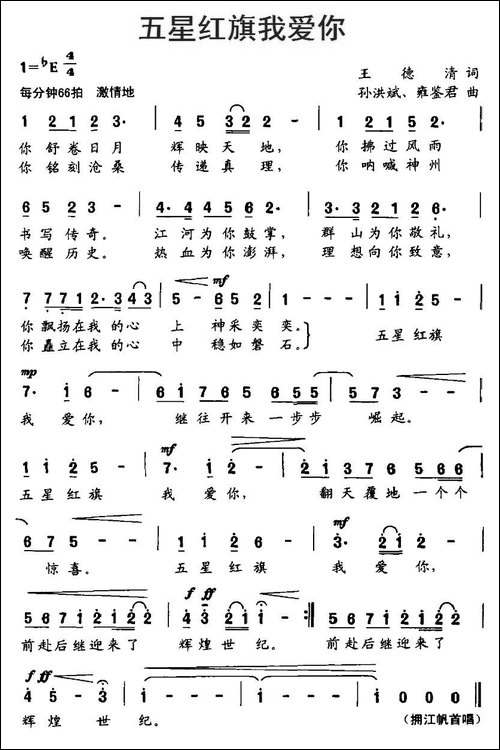 五星红旗我爱你
1=♭E 4/4
王德清 词
每分钟66拍 激情地
孙洪斌、雍鉴君 曲
1 2 1 2 3· | 4 5 3 2 2 - | 1 2 1 5 2 |
你 舒卷日月 辉映天地， 你拂过风雨
你 铭刻沧桑 传递真理， 你呐喊神州
6 5 2 3 - | 4· 4 4 5 6 5 | 3· 3 2 1 2 6· |
书写传奇。 江河为你鼓掌， 群山为你敬礼，
唤醒历史。 热血为你澎湃， 理想向你致意，
mf
7 7 7 1 2· 3 4 3 | 5 - 6 5 6 2 | 1 - - - | 1 1 2 5 - |
你飘扬在我的心 上 神采奕奕。 五星红旗
你矗立在我的心 中 稳如磐石。
mp
7· 1 6 - | 6 - - - | 6 1 7 6 5 6 5 5 | 5 7 3 - |
我 爱你， 继往开来一步步 崛起。
mf
1 1 2 5 - | 7· 1 2 - | 2 - 2 1 3 7 6 5 6 6 |
五星红旗 我 爱你， 翻天覆地一个个
mf
6 7 5 - | 1 1 2 6 - | 3· 2 2 1 - |
惊喜。 五星红旗 我 爱你，
f ff
5 6 7 1 2 1 2 2 | 2 - 5 4 3 2 | 1 - - - :| 5 6 7 1 2 1 2 2 |
前赴后继迎来了 辉煌世纪。 前赴后继迎来了
f ff
4 5 - 3 | 2 - - - | 1 - - - | 1 - - - | 1 0 0 0 ‖
辉煌 世 纪。 （拥江帆首唱）